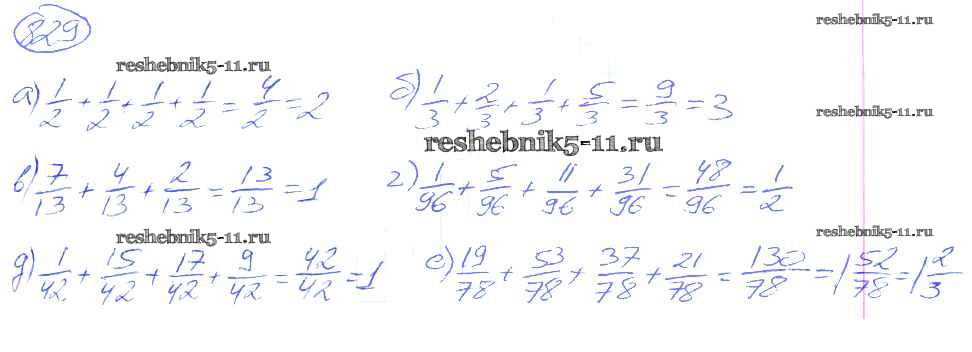 829
reshebnik5-11.ru
reshebnik5-11.ru
а) 1/2 + 1/2 + 1/2 + 1/2 = 4/2 = 2 б) 1/3 + 2/3 + 1/3 + 5/3 = 9/3 = 3
reshebnik5-11.ru
reshebnik5-11.ru
в) 7/13 + 4/13 + 2/13 = 13/13 = 1 г) 1/96 + 5/96 + 11/96 + 31/96 = 48/96 = 1/2
reshebnik5-11.ru
reshebnik5-11.ru
д) 1/42 + 15/42 + 17/42 + 9/42 = 42/42 = 1 е) 19/78 + 53/78 + 37/78 + 21/78 = 130/78 = 1 52/78 = 1 2/3